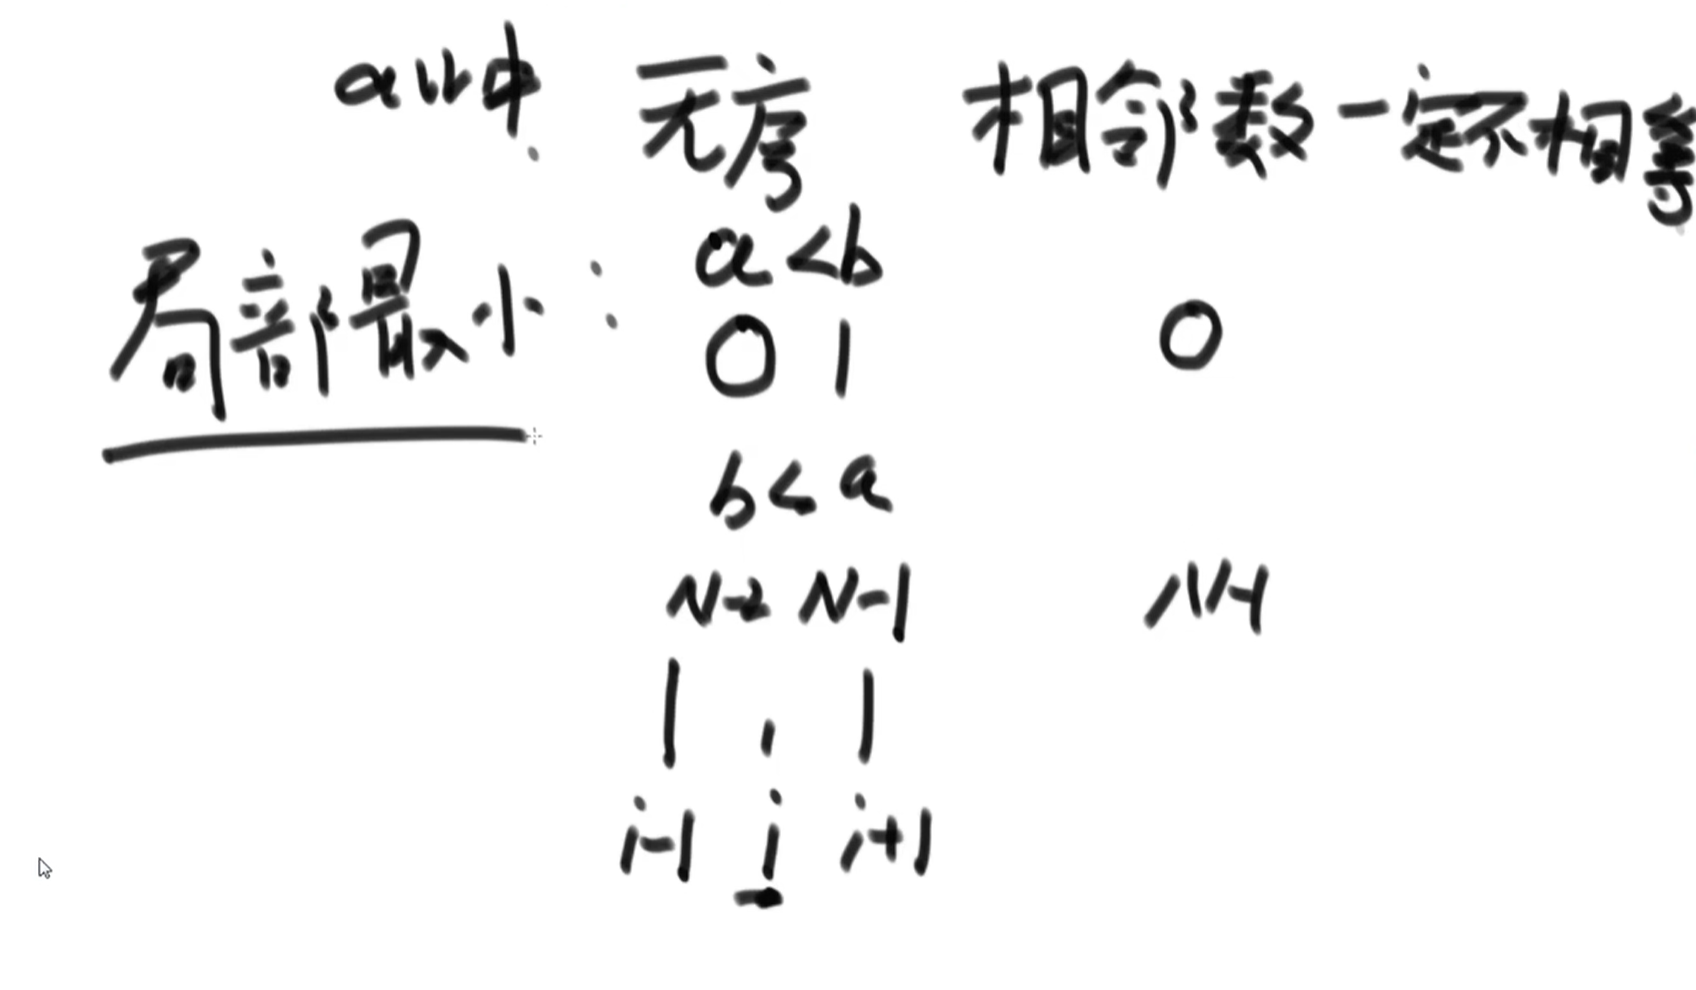 arr中: 无序 相邻数一定不相等
局部最小: a<b
0 1 0
b<a
N-2 N-1 N-1
i-1 i i+1